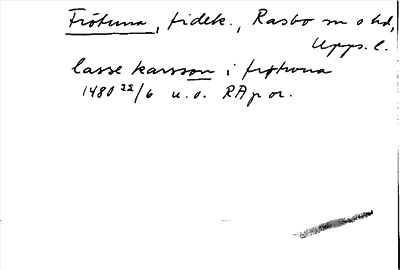 Frötuna, fidek., Rasbo sn o hd,
Upps. l.
lasse karsson i frøtwna
1480 22/6 u.o. RAp or.